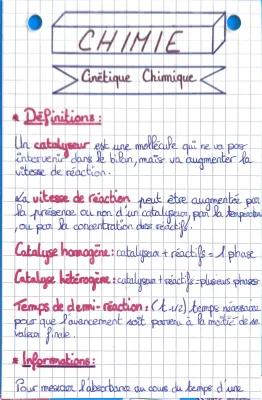 CHIMIE
Cinétique Chimique
* Définitions :
Un catalyseur est une molécule qui ne va pas
intervenir dans le bilan, mais va augmenter la
vitesse de réaction.
La vitesse de réaction peut être augmentée par
la présence ou non d'un catalyseur, par la température
, ou par la concentration des réactifs.
Catalyse homogène : catalyseur + réactifs = 1 phase
Catalyse hétérogène : catalyseur + réactifs = plusieurs phases
Temps de demi-réaction : (t 1/2) temps nécessaire
pour que l'avancement soit parvenu à la moitié de sa
valeur finale.
* Informations :
Pour mesurer l'absorbance au cours du temps d'une